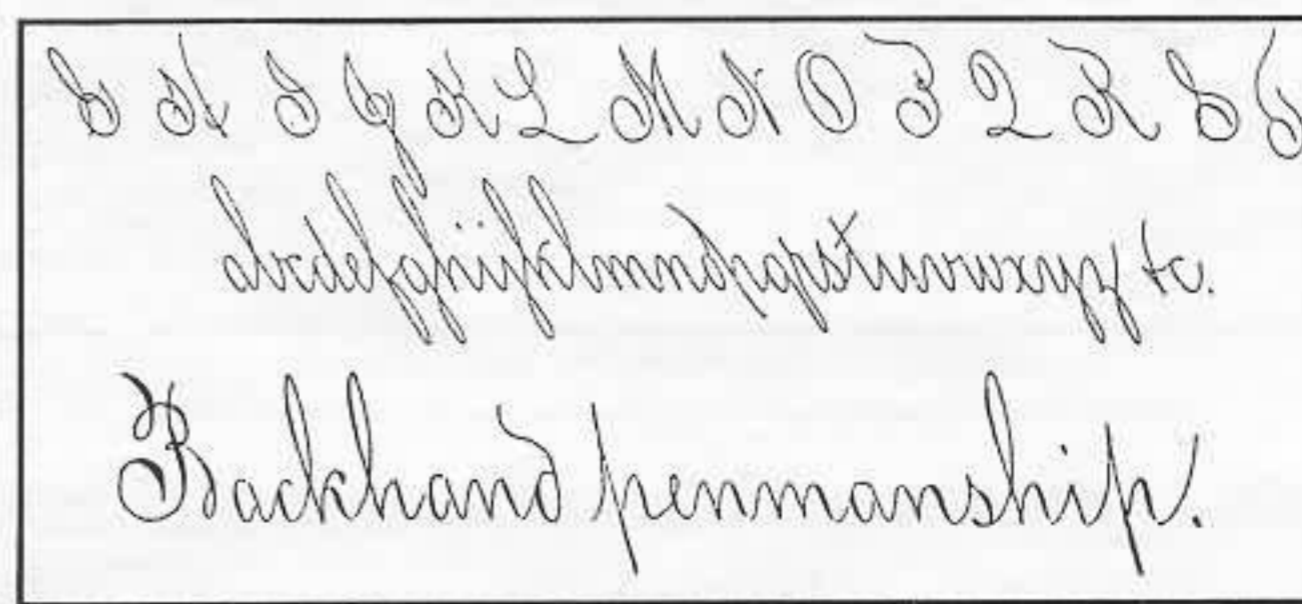 G H I J K L M N O P Q R S T
abcdefghijklmnopqrstuvwxyz &c.
Backhand penmanship.